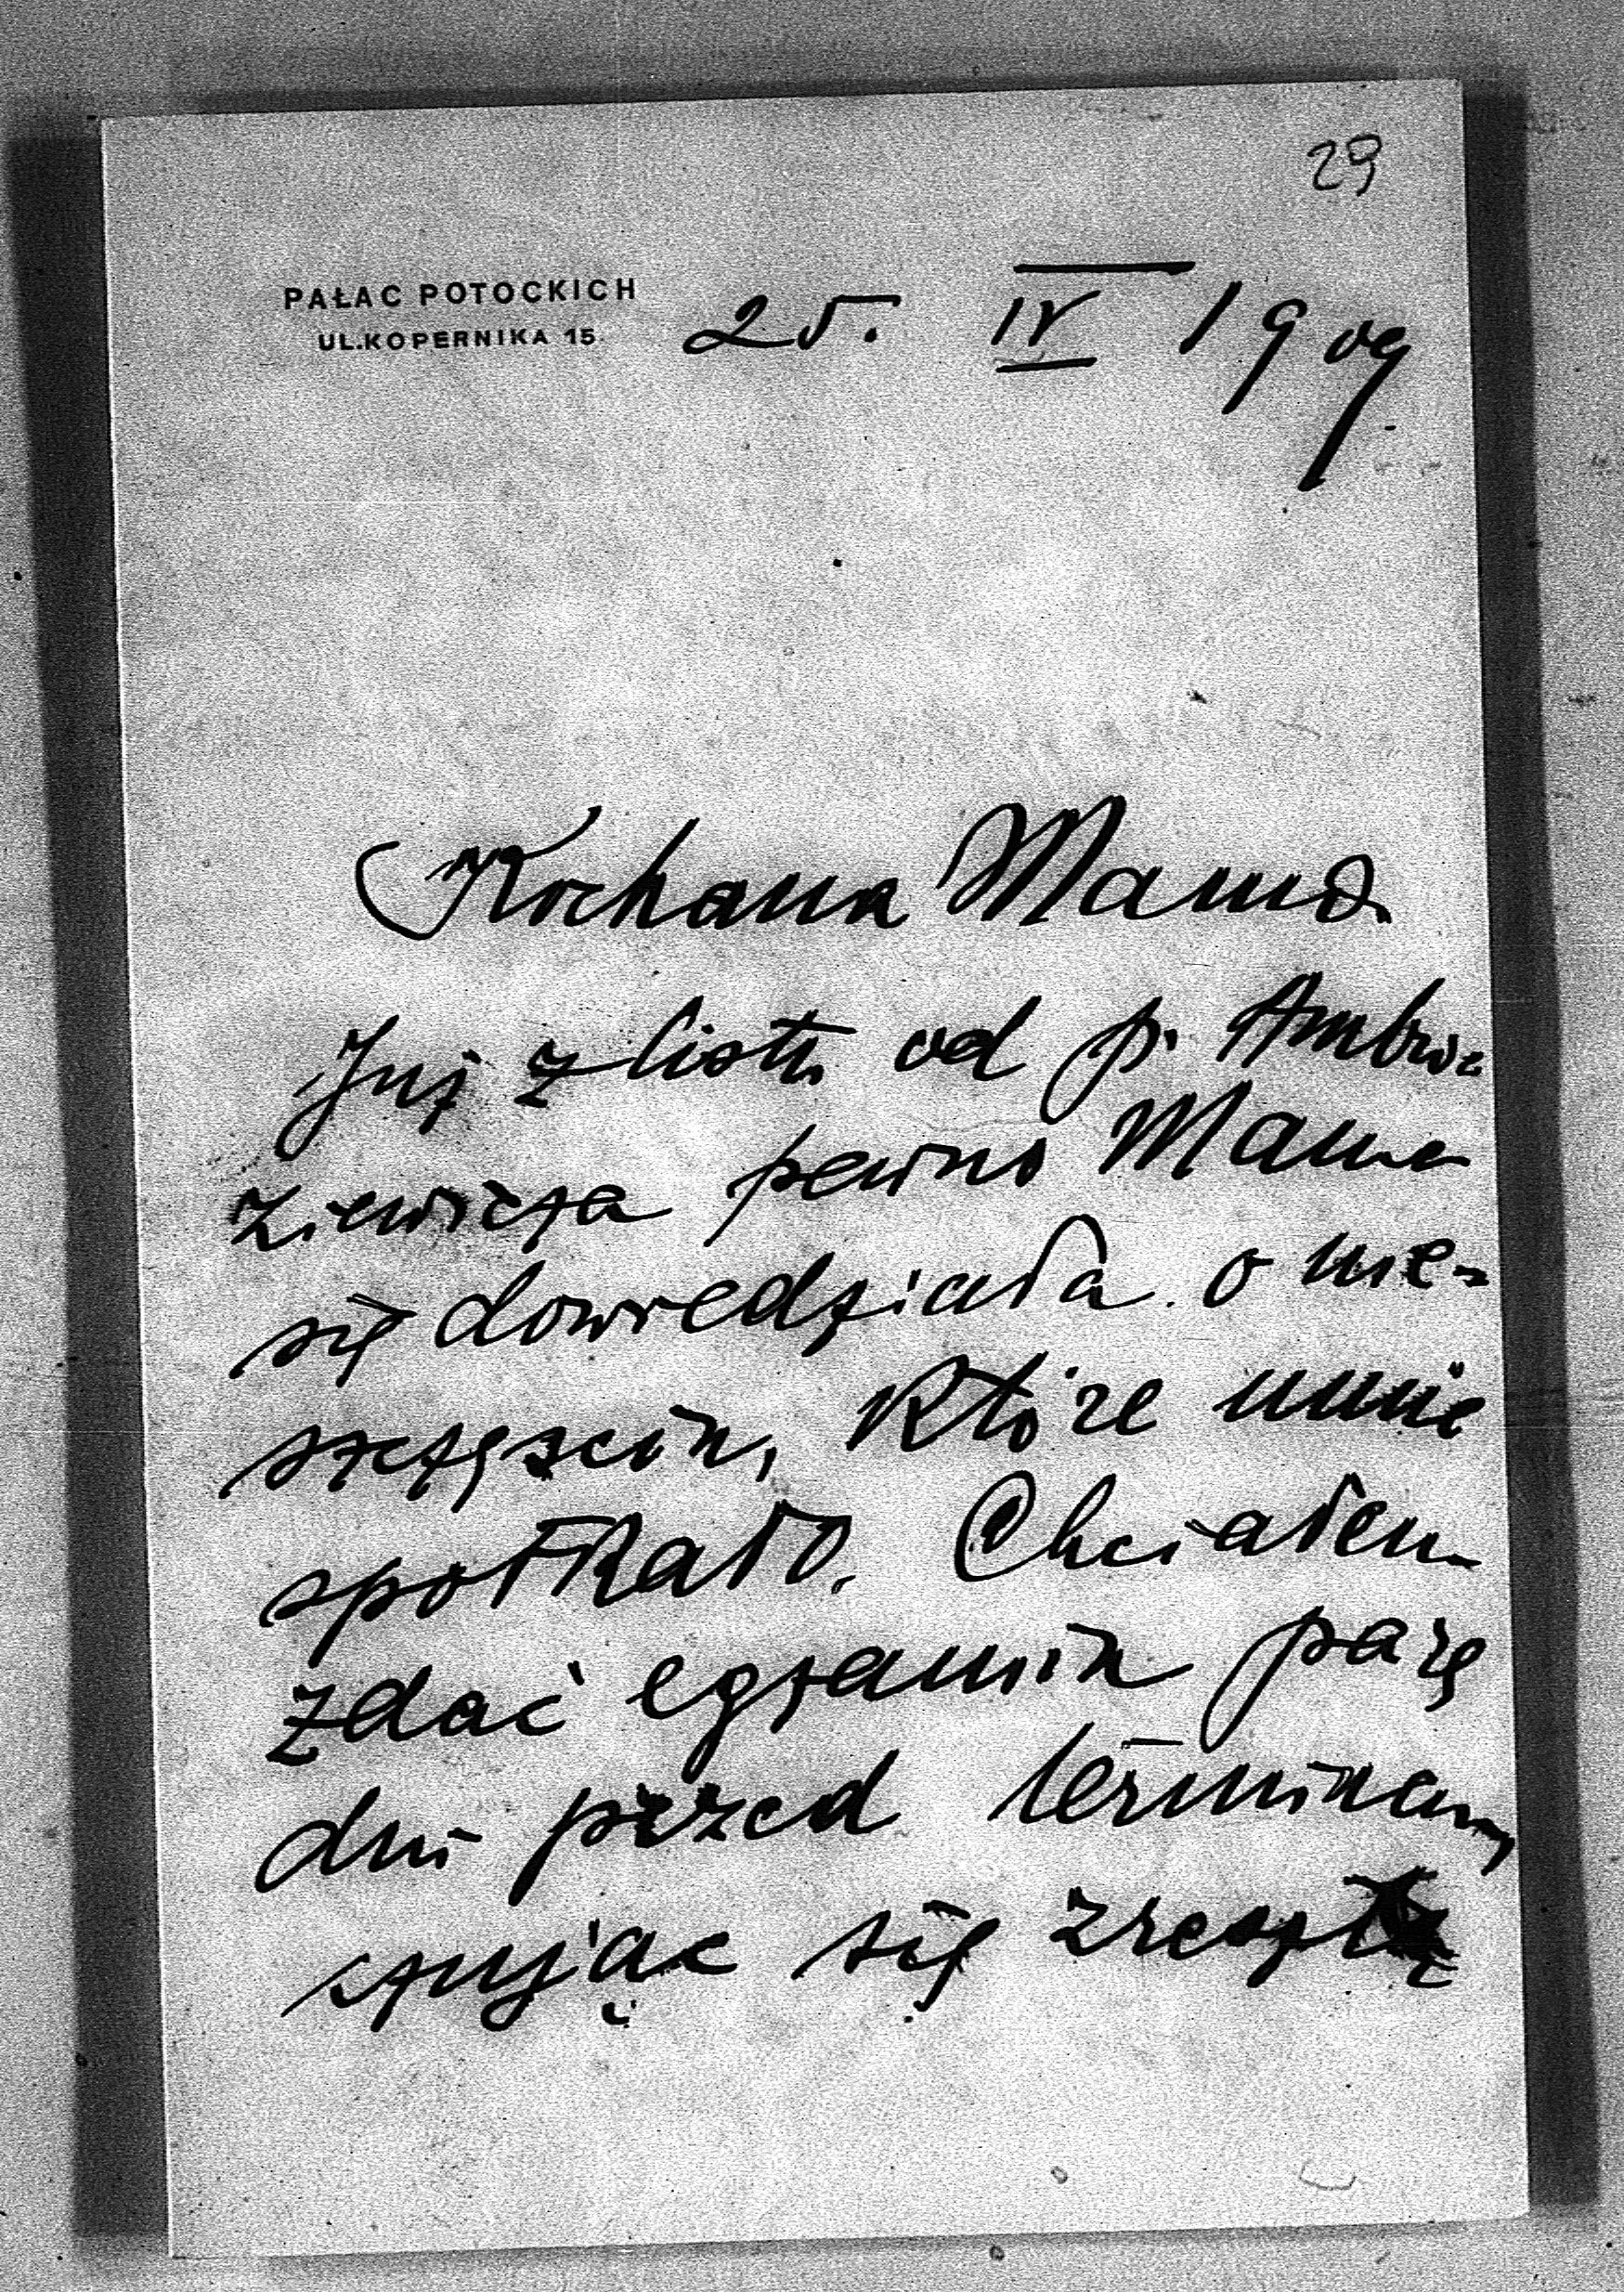 29
PAŁAC POTOCKICH
UL.KOPERNIKA 15
25. IV 1909
Kochana Mamo
Już z listu od p. Ambro-
ziewicza pewno Mama
się dowiedziała o nie-
szczęściu, które mnie
spotkało. Chciałem
zdać egzamin parę
dni przed terminem,
czując się zresztą